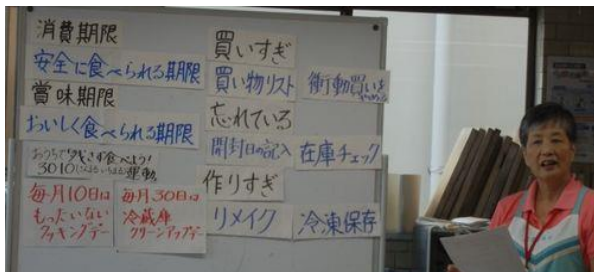 消費期限
安全に食べられる期限
賞味期限
おいしく食べられる期限
おうちで残さず食べよう!
3010
運動
毎月10日は
もったいない
クッキングデー
毎月30日は
冷蔵庫
クリーンアップデー
買いすぎ
買い物リスト
衝動買いを
やめる
忘れている
開封日の記入
在庫チェック
作りすぎ
リメイク
冷凍保存